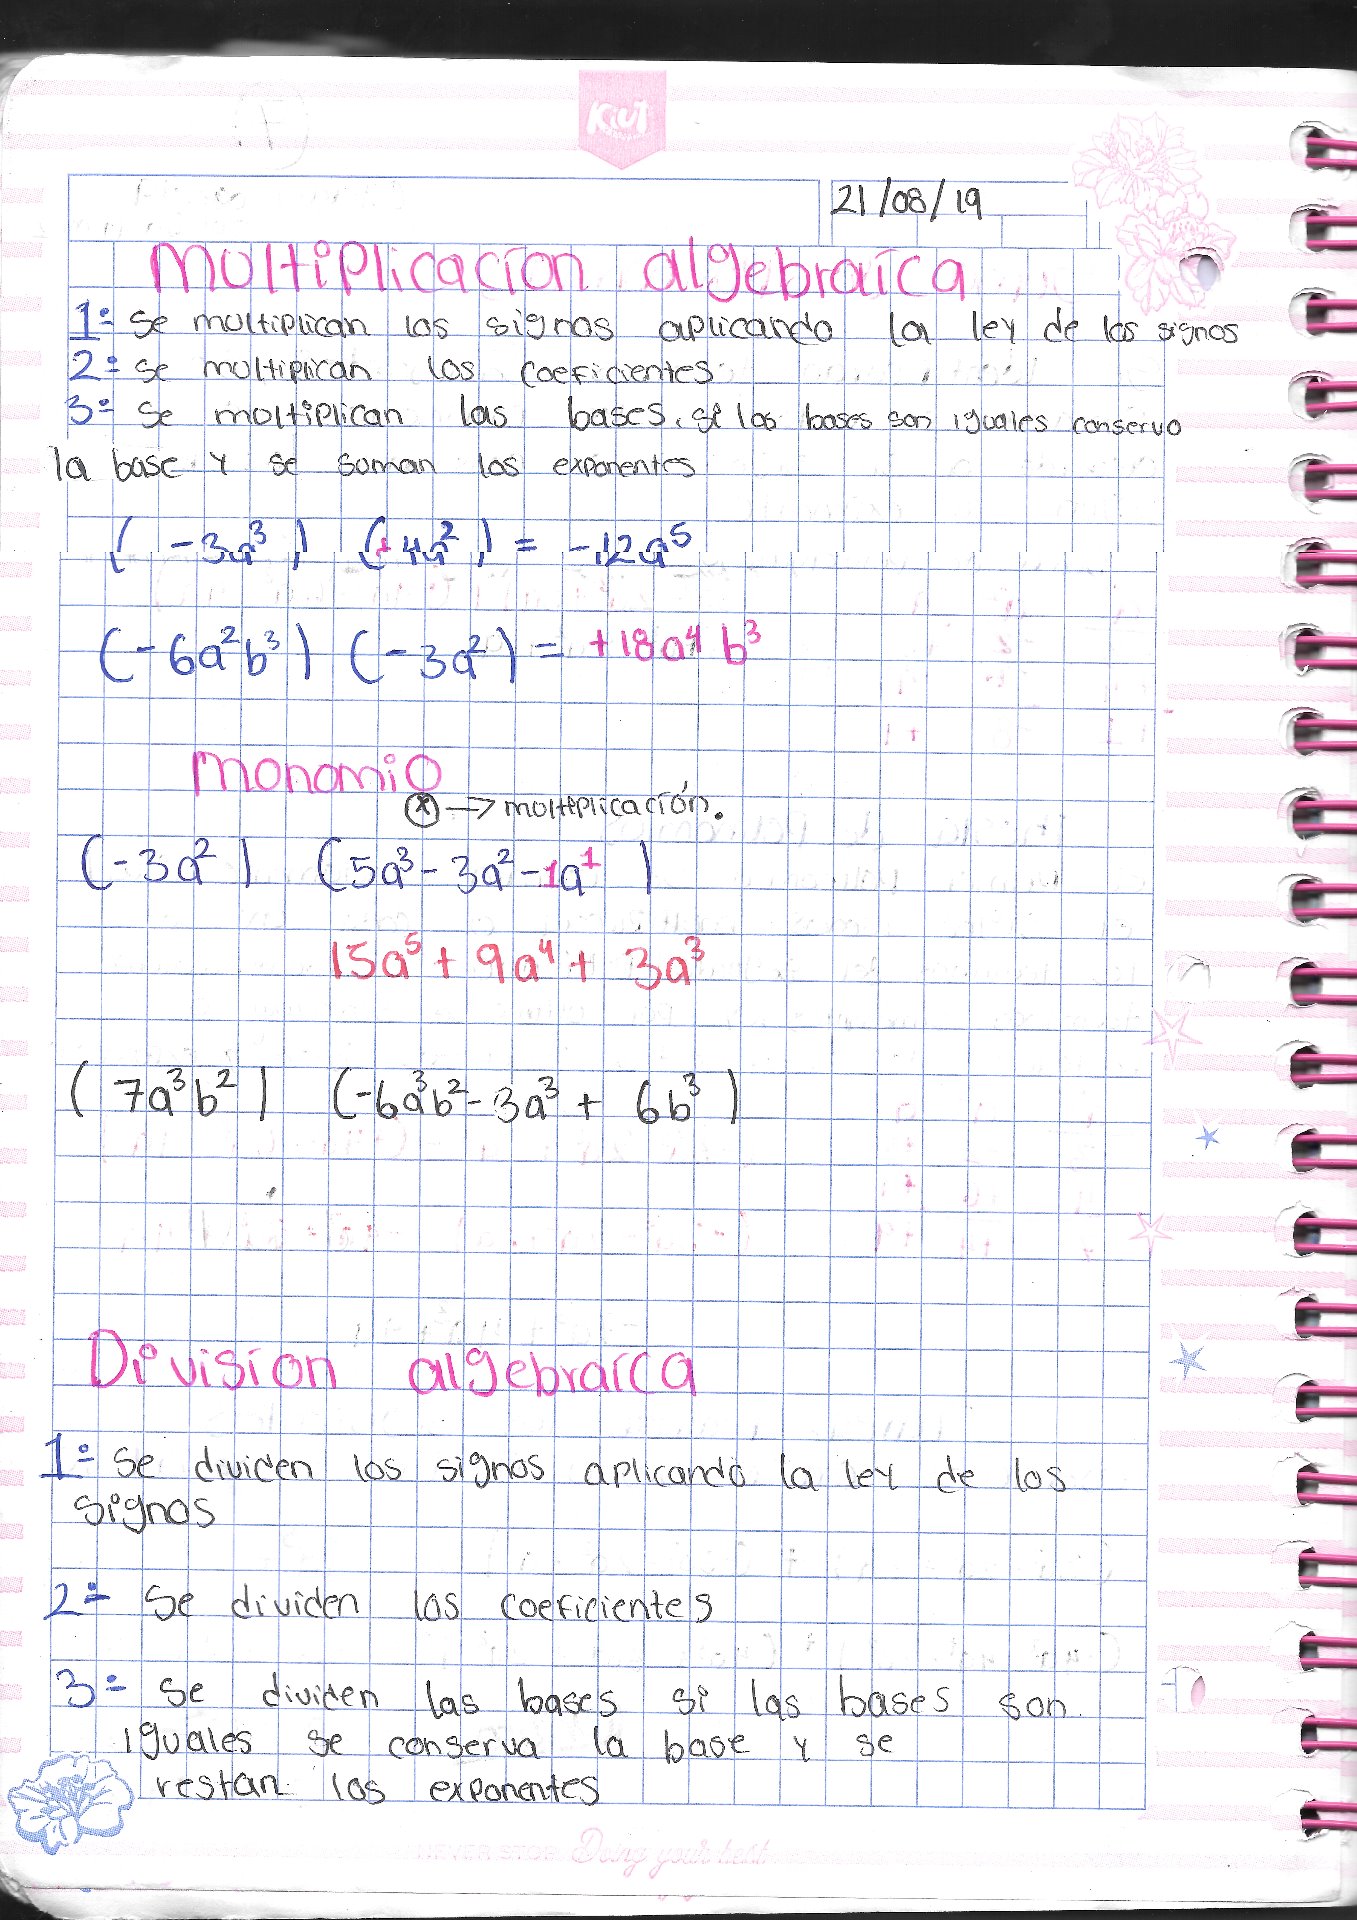 Kiut
21/08/19
multiplicacíon algebraíca
1º se multiplican los signos aplicando la ley de los signos
2º se multiplican los coeficientes
3º se moltiplican las bases. si las bases son iguales conservo
la base y se suman los exponentes
(-3a³) (+4a²) = -12a⁵
(-6a²b³) (-3a²) = +18a⁴b³
monomio
ⓧ → moltiplicación.
(-3a²) (5a³-3a²-1a¹)
15a⁵ + 9a⁴ + 3a³
(7a³b²) (-6a³b²-3a³ + 6b³)
Divisíon algebraíca
1º se dividen los signos aplicando la ley de los
signos
2º se dividen los coeficientes
3º se dividen las bases si las bases son
iguales se conserva la base y se
restan los exponentes
NEVER STOP Doing your best